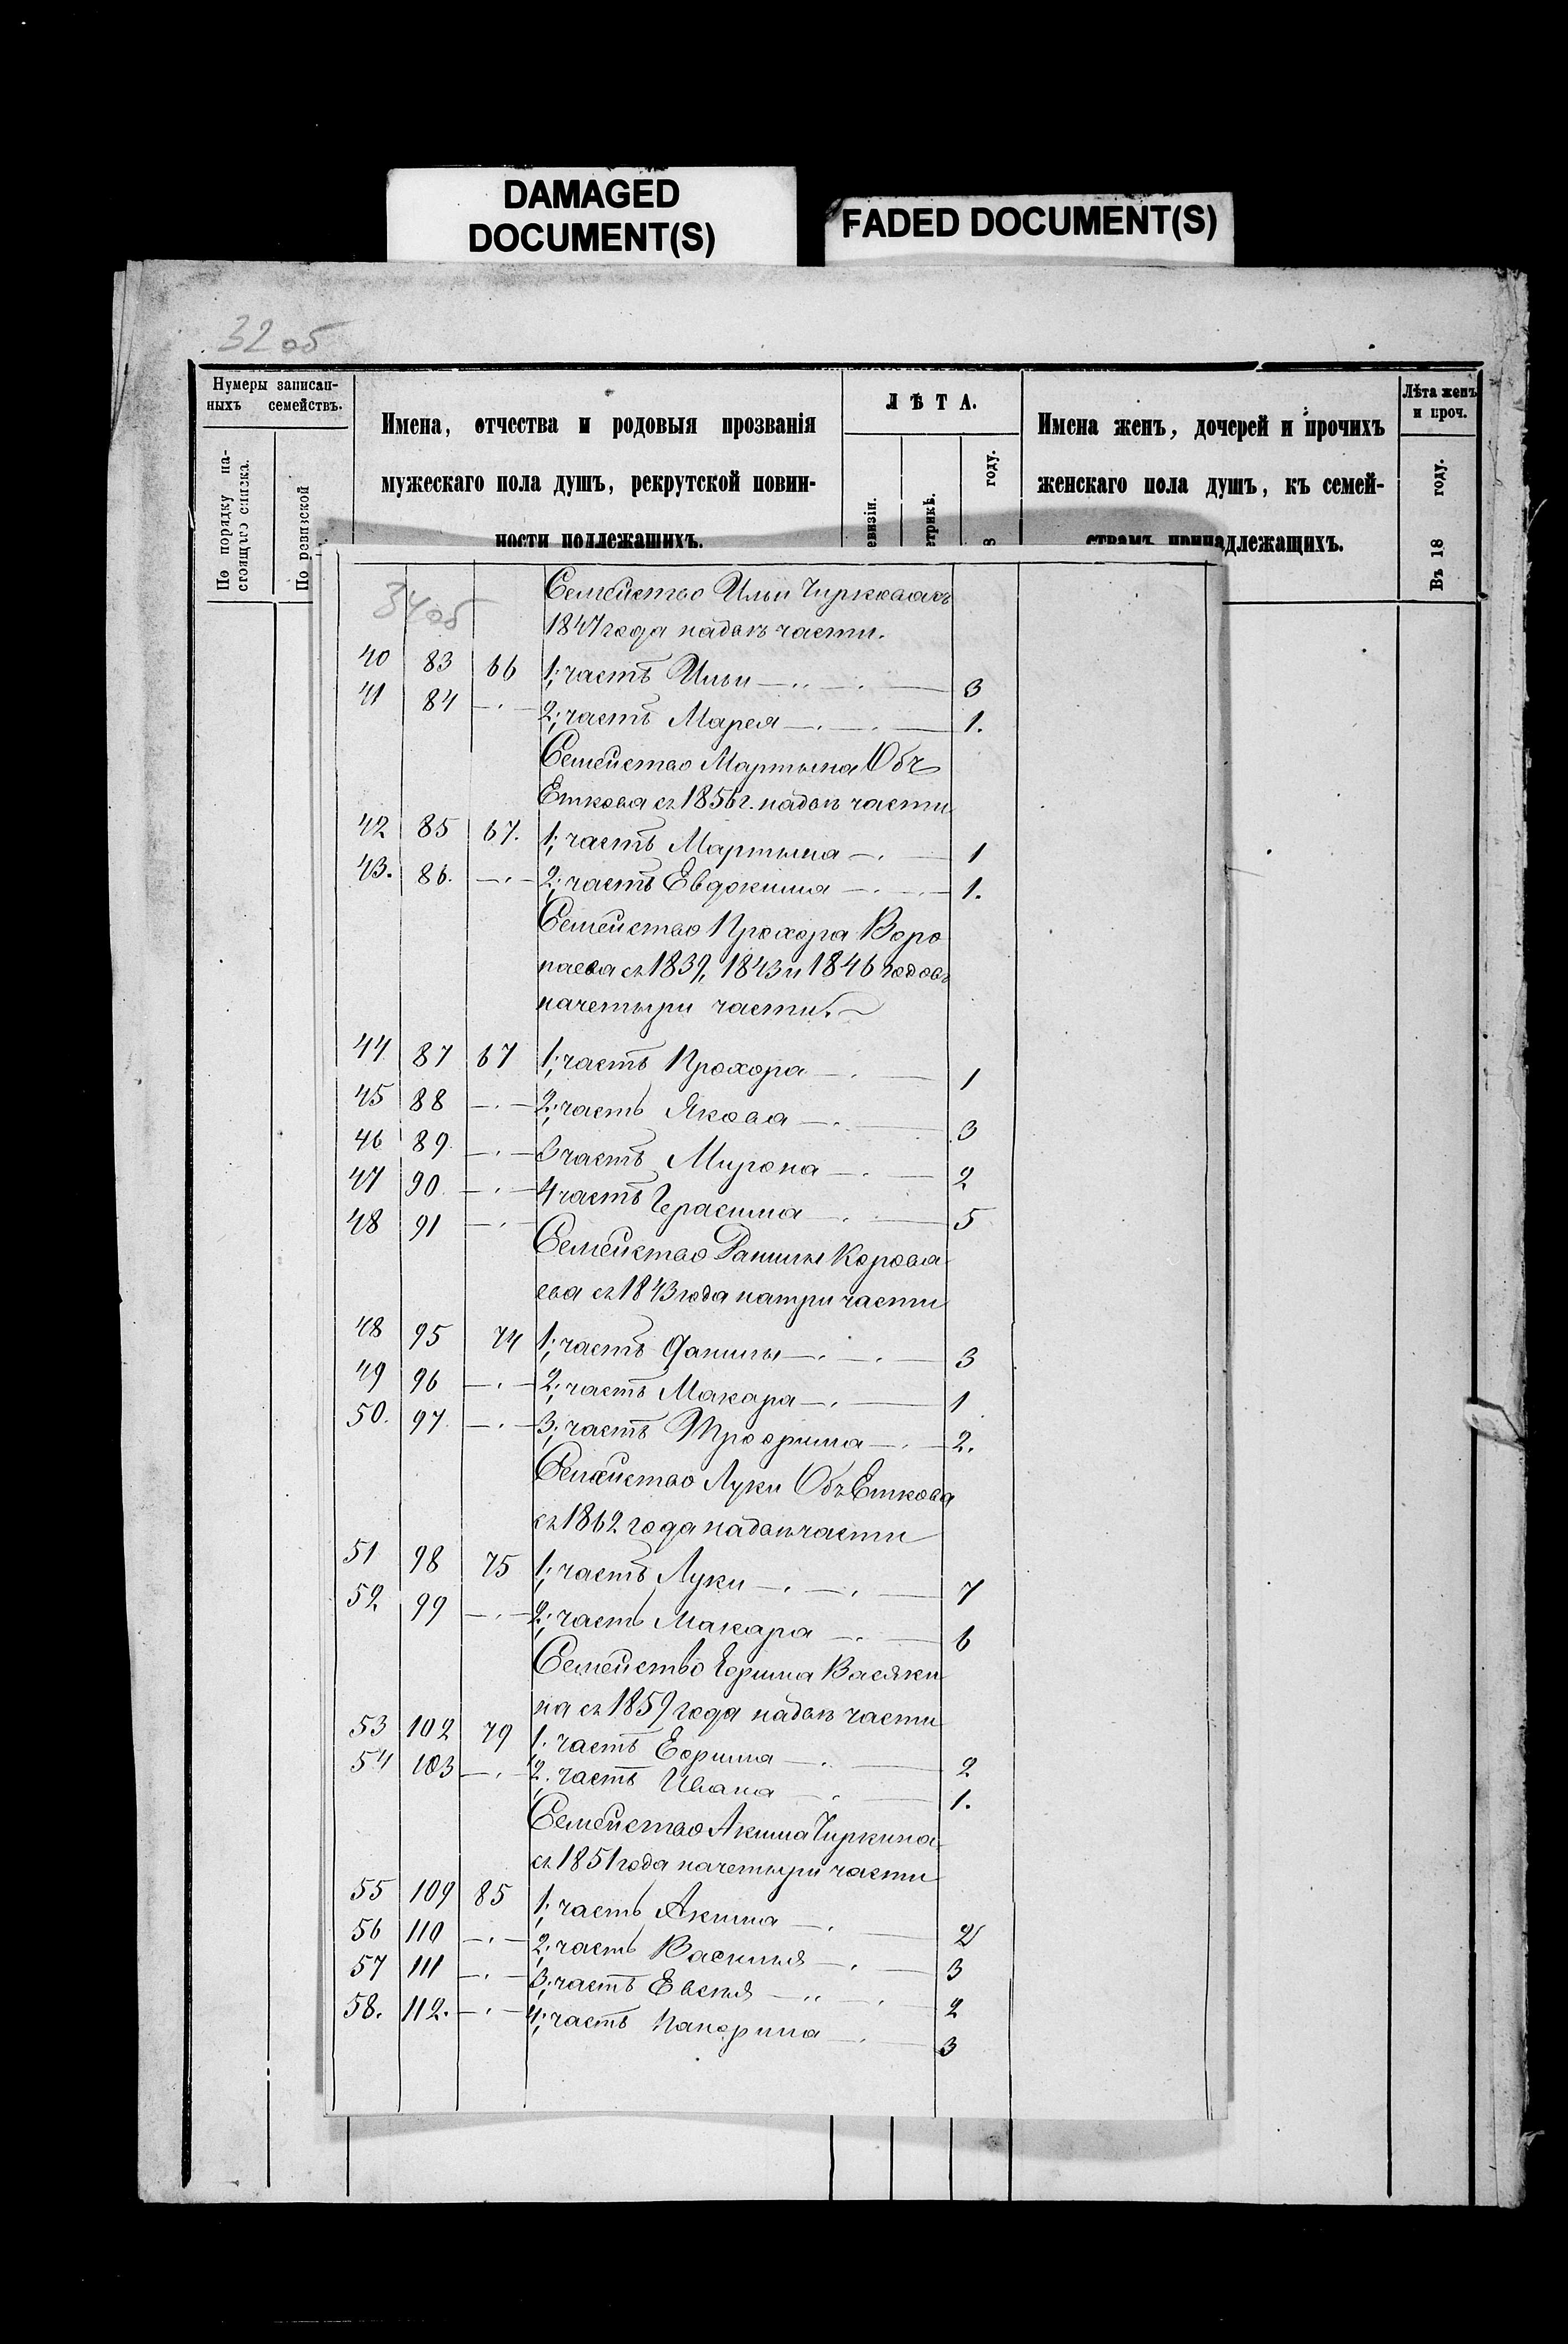 DAMAGED
DOCUMENT(S)
FADED DOCUMENT(S)
32 об
Нумеры записан-
ныхъ семействъ.
По порядку на-
стоящаго списка.
По ревизской
Имена, отчества и родовыя прозванія
мужескаго пола душъ, рекрутской повин-
ности подлежащихъ.
ЛѢТА.
евизіи.
етрикѣ.
году.
Имена женъ, дочерей и прочихъ
женскаго пола душъ, къ семей-
ствамъ принадлежащихъ.
Лѣта женъ
и проч.
Въ 18 году.
34 об
Семейство Ильи Чиркова съ
1847 года надвѣ части.
40 83 66 1; часть Ильи 3
41 84 2; часть Марея 1.
Семейство Мартына Объ
Еткова съ 1856 г. надвѣ части
42 85 67. 1; часть Мартына 1
43. 86. 2; часть Евдокима 1.
Семейство Прохора Воро
паева съ 1839, 1843 и 1846 годовъ
начетыри части.
44 87 67 1; часть Прохора 1
45 88 2; часть Якова 3
46 89. 3 часть Мирона 2
47 90. 4 часть Герасима 5
48 91
Семейство Данилы Корова
ева съ 1843 года натри части
48 95 74 1; часть Данилы 3
49 96 2; часть Макара 1
50. 97. 3; часть Трофима 2.
Семейство Луки ОбъЕткова
съ 1862 года надвѣ части
51 98 75 1; часть Луки 7
52 99 2; часть Макара 6
Семейство Ефима Васяки
на съ 1859 года надвѣ части
53 102 79 1. часть Ефима 2
54 103 2. часть Ивана 1.
Семейство Акима Чиркина
съ 1851 года начетыри части
55 109 85 1; часть Акима 2
56 110 2; часть Василья 3
57 111 3; часть Евсья 2
58. 112. 4; часть Панфила 3